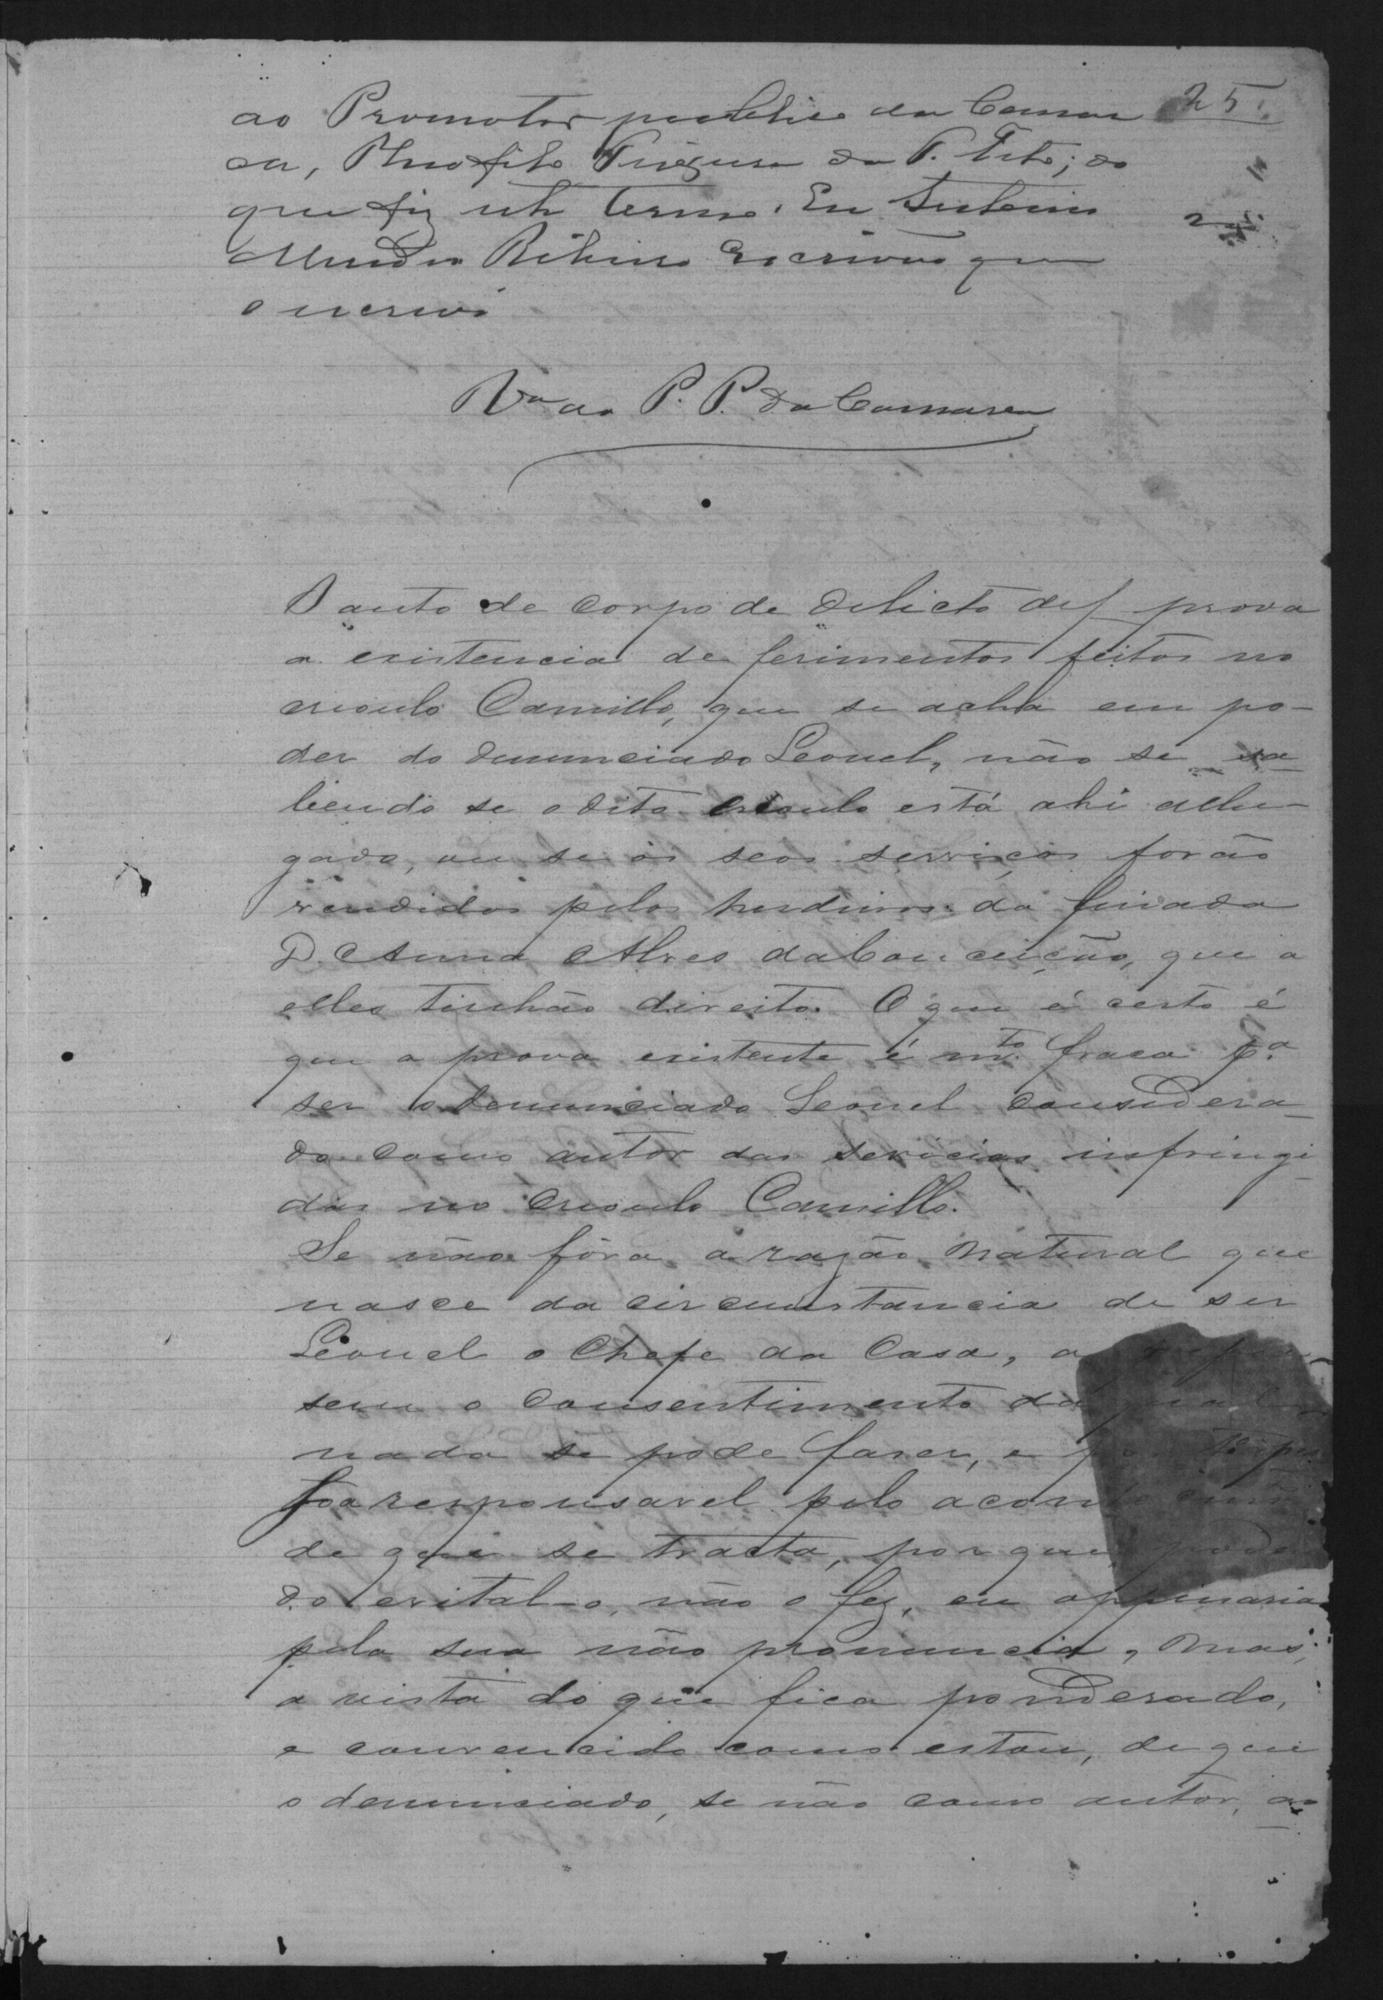 25.
ao Promotor publico da Comar
ca, Theofilo da P. ; do
que fiz este termo. Eu
Mendes Ribeiro Escrivão que
o escrevi
Va ao P. P. da Comarca
O auto de corpo de delicto de f prova
a existencia de ferimentos feitos no
crioulo Camillo, que se acha em po-
der do denunciado Leonel, não se sa-
bendo se o dito crioulo está ahi allu-
gado, ou se os seos serviços forão
vendidos pelos herdeiros da finada
D. Anna Alves da Conceição, que a
elles tinhão direito. O que é certo é
que a prova existente é mto. fraca pa.
ser o denunciado Leonel considera-
do como autor das sevicias infringi-
das no crioulo Camillo.
Se não fôra a razão natural que
nasce da circumstancia de ser
Leonel o Chefe da Casa, a
sem o consentimento da
nada se pode faser, e
responsavel pelo
de que se tracta, por que, poden
do evital-o, não o fez, eu oppinaria
pela sua não pronuncia, mas,
a vista do que fica ponderado,
e convencido como estou, de que
o denunciado, se não como autor, ao